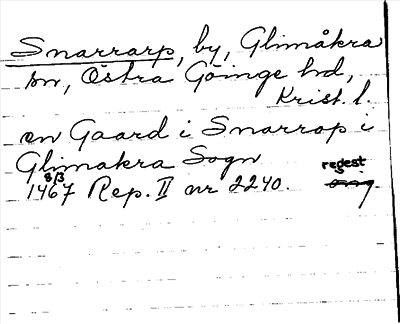 Snarrarp, by, Glimåkra
sn, Östra Göinge hd,
Krist. l.
en Gaard i Snarrap i
Glimakra Sogn
8/3
1467 Rep. II nr 2240. regest
orig.